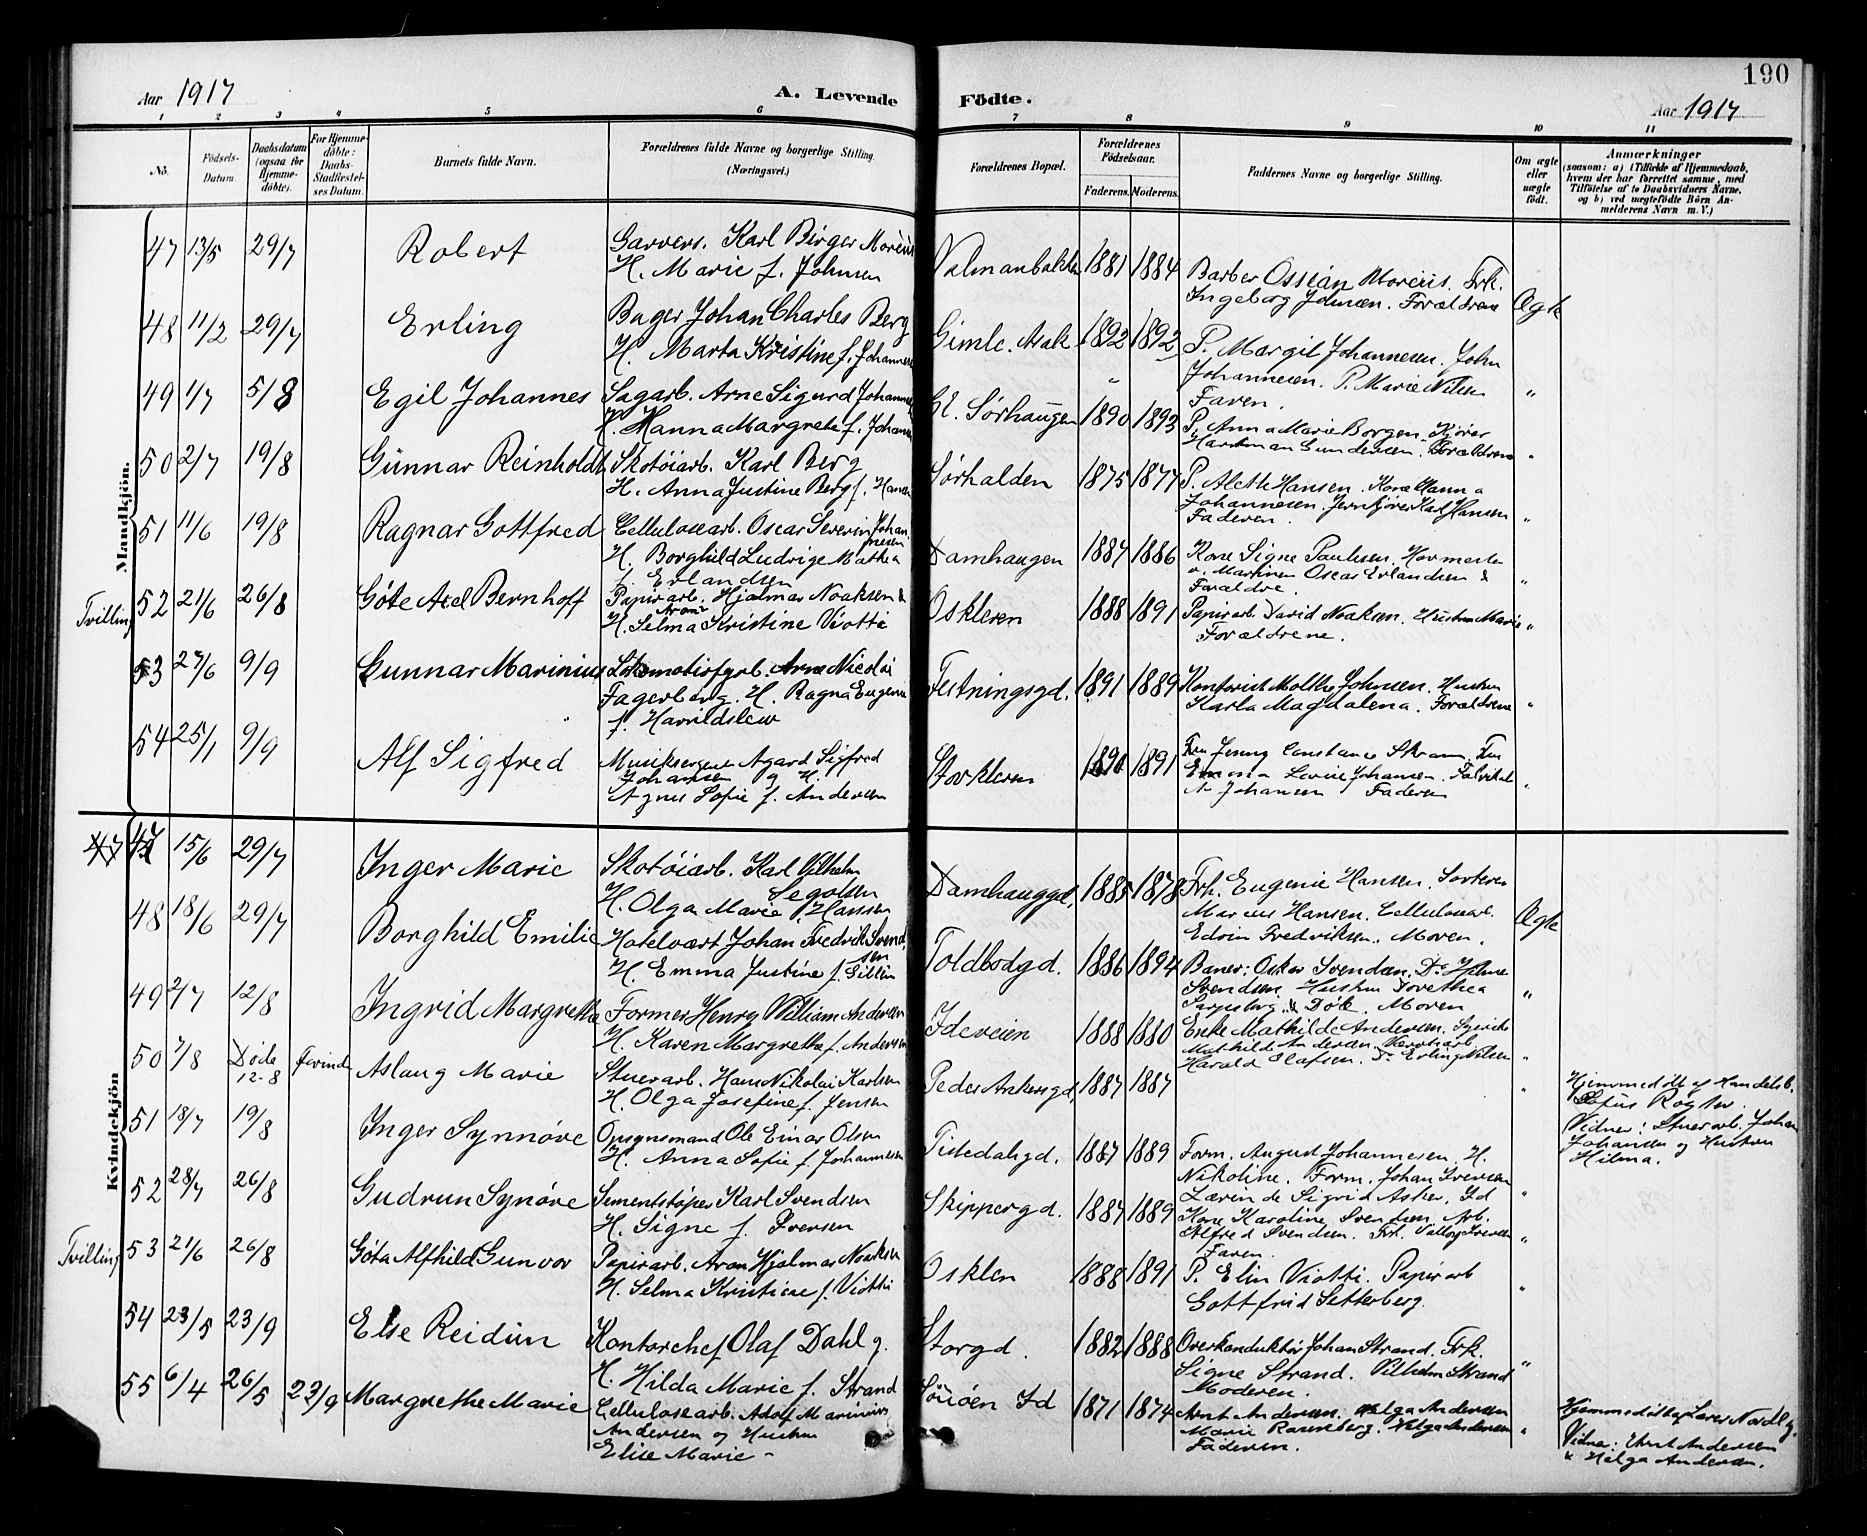 190
Aar 1917
A. Levende
Födte.
Aar 1917
1 2 3 4 5 6 7 8 9 10 11
No.
Födsels-
Datum.
Daabsdatum
(ogsaa for
Hjemme-
døbte).
For Hjemme-
døbte:
Daabs-
Stadfæstel-
ses Datum.
Barnets fulde Navn.
Forældrenes fulde Navne og borgerlige Stilling
(Næringsvei.)
Forældrenes Bopæl.
Forældrenes
Födselsaar.
Faderens.
Moderens.
Faddernes Navne og borgerlige Stilling.
Om ægte
eller
uægte
født.
Anmærkninger
(saasom: a) i Tilfælde af Hjemmedaab,
hvem der har forrettet samme, med
Tilføielse af to Daabsvidners Navne,
og b) ved uægtefödte Börn An-
melderens Navn m. V.)
Mandkjön.
47 13/5 29/7 Robert
Garvers. Karl Birger Moréus
H. Marie f. Johnsen
1881 1884
Barber Ossian Moréus. Frk.
Ingeborg Johnsen. Forældrene
Ægte
48 11/2 29/7 Erling
Bager Johan Charles Berg
H. Marta Kristine f. Johannes
Gimle. Aak 1892 1892
P. Margit Johannesen. John
Johannesen. P. Marie Nilsen
Faren.
"
49 1/7 5/8 Egil Johannes
Sagarb. Arne Sigurd Johannes
H. Hanna Margrete f. Johan
Gl. Sørhaugen 1890 1893
P. Anna Marie Borgen. Kjører
Hartman Gundersen. Forældrene
"
50 2/7 19/8 Gunnar Reinholdt
Skotøiarb. Karl Berg
H. Anna Justine Berg f. Hansen
Sørhalden 1875 1877
P. Alette Hansen. Kone Hanna
Johannesen. Jernkjører Karl Hansen
Faderen.
"
51 11/6 19/8 Ragnar Gottfred
Cellulosearb. Oscar Severin Johan
nesen
H. Borghild Ludvige Mathea
f. Erlandsen
Damhaugen 1887 1886
Kone Signe Paulsen. Havnearb
Martinus Oscar Erlandsen &
Forældre.
"
Tvilling 52 21/6 26/8 Göte Axel Bernhoff
Papirarb. Hjalmar Noaksen &
Aron
H. Selma Kristine Viotti
Oskleven 1888 1891
Papirarb David Noaksen. Hustru Marie
Forældrene.
"
53 27/6 9/9 Gunnar Marinius
Lokomotivfyrb. Arne Nicolai
Fagerberg. H. Ragna Eugenie
f. Harildslew
Festningsgd. 1891 1889
Kontorist Moltke Johnsen. Hustru
Karla Magdalena. Forældrene
"
54 25/1 9/9 Alf Sigfred
Musiksergent Agard Sigfred
Johansen og H.
Agnes Sofie f. Andersen
Storkleven 1890 1891
Fru Jenny Constance Skram. Fru
Emma Lovise Johansen. Fabrikar
A Johansen Faderen
"
Kvindekjön
47 15/6 29/7 Inger Marie
Skotøiarb. Karl Vilhelm
Segolsen
H. Olga Marie f. Hansen
Damhauggd. 1885 1878
Frk. Eugenie Hansen. Sorterer
Marcus Hansen. Cellulosearb.
Edvin Fredriksen. Moren.
Ægte
48 18/6 29/7 Borghild Emilie
Hotelvært Johan Fredrik Svend
sen
H. Emma Justine f. Sillén
Toldbodgd. 1886 1894
Baner: Oskar Svendsen. Do Hilma
Svendsen. Hustru Dorethea
Sarpsborg & Døk. Moren
49 2/7 12/8 Ingrid Margrethe
Former Henry William Andersen
H. Karen Margrethe f. Andersen
Ideveien 1888 1880
Enke Mathilde Andersen. Syerske
Mathilde Andersen. Værftsarb
Harald Olafsen. Do Erling Nilsen
"
50 7/8 Døde
12-8 forinden Aslaug Marie
Stuerarb. Hans Nikolai Karlsen
H. Olga Josefine f. Jensen
Peder Ankersgd, 1887 1887
"
Hjemmedøbt af Handelsb.
Rofus Røgler.
Vidner: Stuerarb. Johan
Johansen og Hustru
Hilma.
51 18/7 19/8 Inger Synnøve
Opsynsmand Ole Einar Olsen
H. Anna Sofie f. Johannesen
Tistedalsgd. 1887 1889
Form. August Johannesen. H.
Nikoline. Form. Johan Iversen
Lærerinde Sigrid Asker. Id
"
52 28/7 26/8 Gudrun Synøve
Sementstøper Karl Svendsen
H. Signe f. Iversen
Skippergd. 1887 1889
Kone Karoline Svendsen. Arb.
Alfred Svendsen. Frk. Valborg Iversen
Faren.
"
Tvilling 53 21/6 26/8 Göta Alfhild Gunvor
Papirarb. Aron Hjalmar Noaksen
H. Selma Kristine f. Viotti
Osklen 1888 1891
P. Elin Viotti. Papirarb
Gottfrid Setterberg.
"
54 23/5 23/9 Else Reidun
Kontorchef Olaf Dahl g.
H. Hilda Marie f. Strand
Storgd. 1882 1888
Overkonduktør Johan Strand. Frk.
Signe Strand. Vilhelm Strand
Moderen.
"
55 6/4 26/5 23/9 Margrethe Marie
Cellulosearb. Adolf Marinius
Andersen og Hustru
Elise Marie -
Sauøen Id 1871 1874
Arnt Andersen. Helga Andersen
Marie Ramsberg. Helga Andersen
Faderen.
"
Hjemmedøbt af Lærer Nordby.
Vidner: Arnt Andersen
& Helga Andersen.